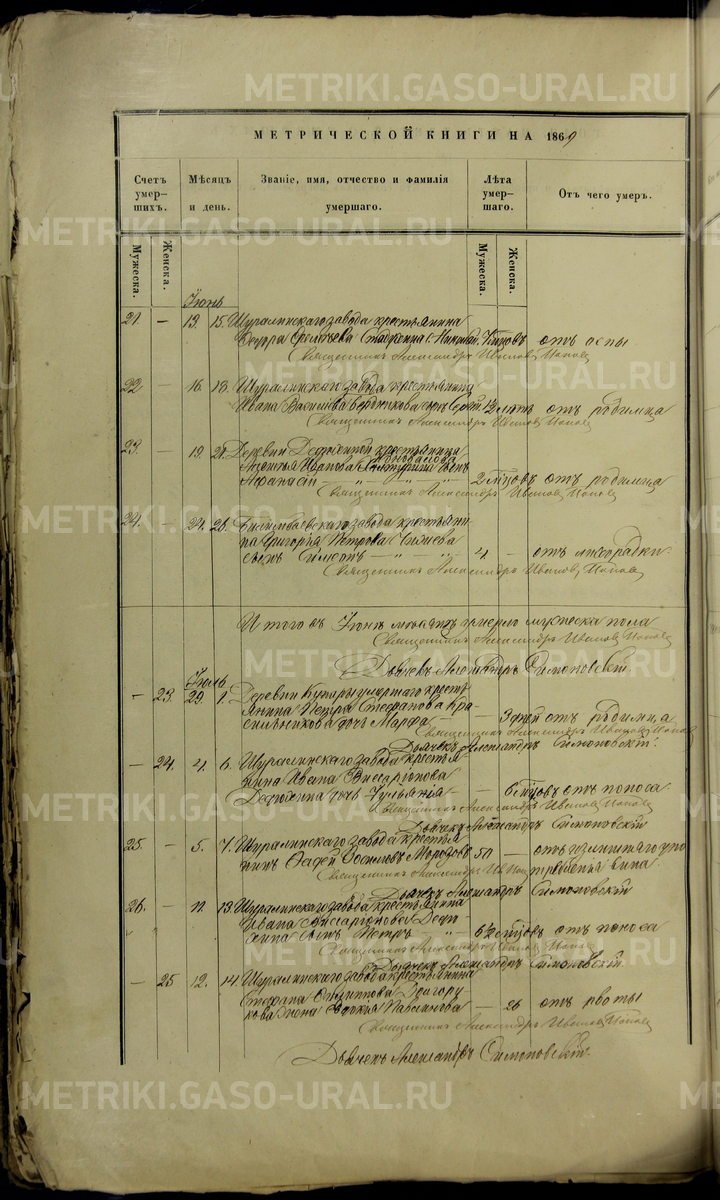 METRIKI.GASO-URAL.RU
МЕТРИЧЕСКОЙ КНИГИ НА 1869
Счетъ умершихъ. Мѣсяцъ и день. Званіе, имя, отчество и фамилія умершаго. Лѣта умершаго. Отъ чего умеръ.
Мужеска. Женска. Мужеска. Женска.
Іюнь
21. — 13. 15. Шуралинскаго завода крестьянина
Николай, отъ оспы
Священникъ Александръ Ивановъ Поповъ
22. — 16. 18. Шуралинскаго завода крестьянина
Ивана Васильева Бердникова сынъ Сергѣй 1½ лѣтъ отъ родимца
Священникъ Александръ Ивановъ Поповъ
23. — 19. 21. Деревни крестьянина
Иванова сынъ
Афанасій — " — " — " — " 2 мѣсяцовъ отъ родимца
Священникъ Александръ Ивановъ Поповъ
24. — 24. 26. Билимбаевскаго завода крестьяни-
на Григорія Петрова
сынъ Симеонъ — " — " 4 — отъ лихорадки.
Священникъ Александръ Ивановъ Поповъ
Итого въ Іюнѣ мѣсяцѣ умерло мужеска пола
Священникъ Александръ Ивановъ Поповъ
Дьячекъ Александръ Симоновскій
Іюль
— 23. 29. 1. Деревни Кунары умершаго кресть-
янина Петра Стефанова Кра-
сильникова дочь Марфа — — 3 дней отъ родимца
Священникъ Александръ Ивановъ Поповъ
Дьячекъ Александръ Симоновскій.
— 24. 4. 6. Шуралинскаго завода крестья-
нина Ивана Виссаріонова
дочь Іульянія — — 6 мѣсяцовъ отъ поноса.
Священникъ Александръ Ивановъ Поповъ
Дьячекъ Александръ Симоновскій
25. — 5. 7. Шуралинскаго завода крестья-
нинъ Фадей Осиповъ Морозовъ 50 — отъ излишняго упо-
требленія вина.
Священникъ Александръ Ив. Поп.
Дьячекъ Александръ Симоновскій
26. — 11. 13. Шуралинскаго завода крестьянина
Ивана Виссаріонова
сынъ Петръ — " — 6½ мѣсяцовъ отъ поноса
Священникъ Александръ Ивановъ Поповъ
Дьячекъ Александръ Симоновскій.
— 25 12. 14. Шуралинскаго завода крестьянина
Стефана Филиппова Долгору-
кова жена Евдокія — 26 отъ рвоты
Священникъ Александръ Ивановъ Поповъ
Дьячекъ Александръ Симоновскій.